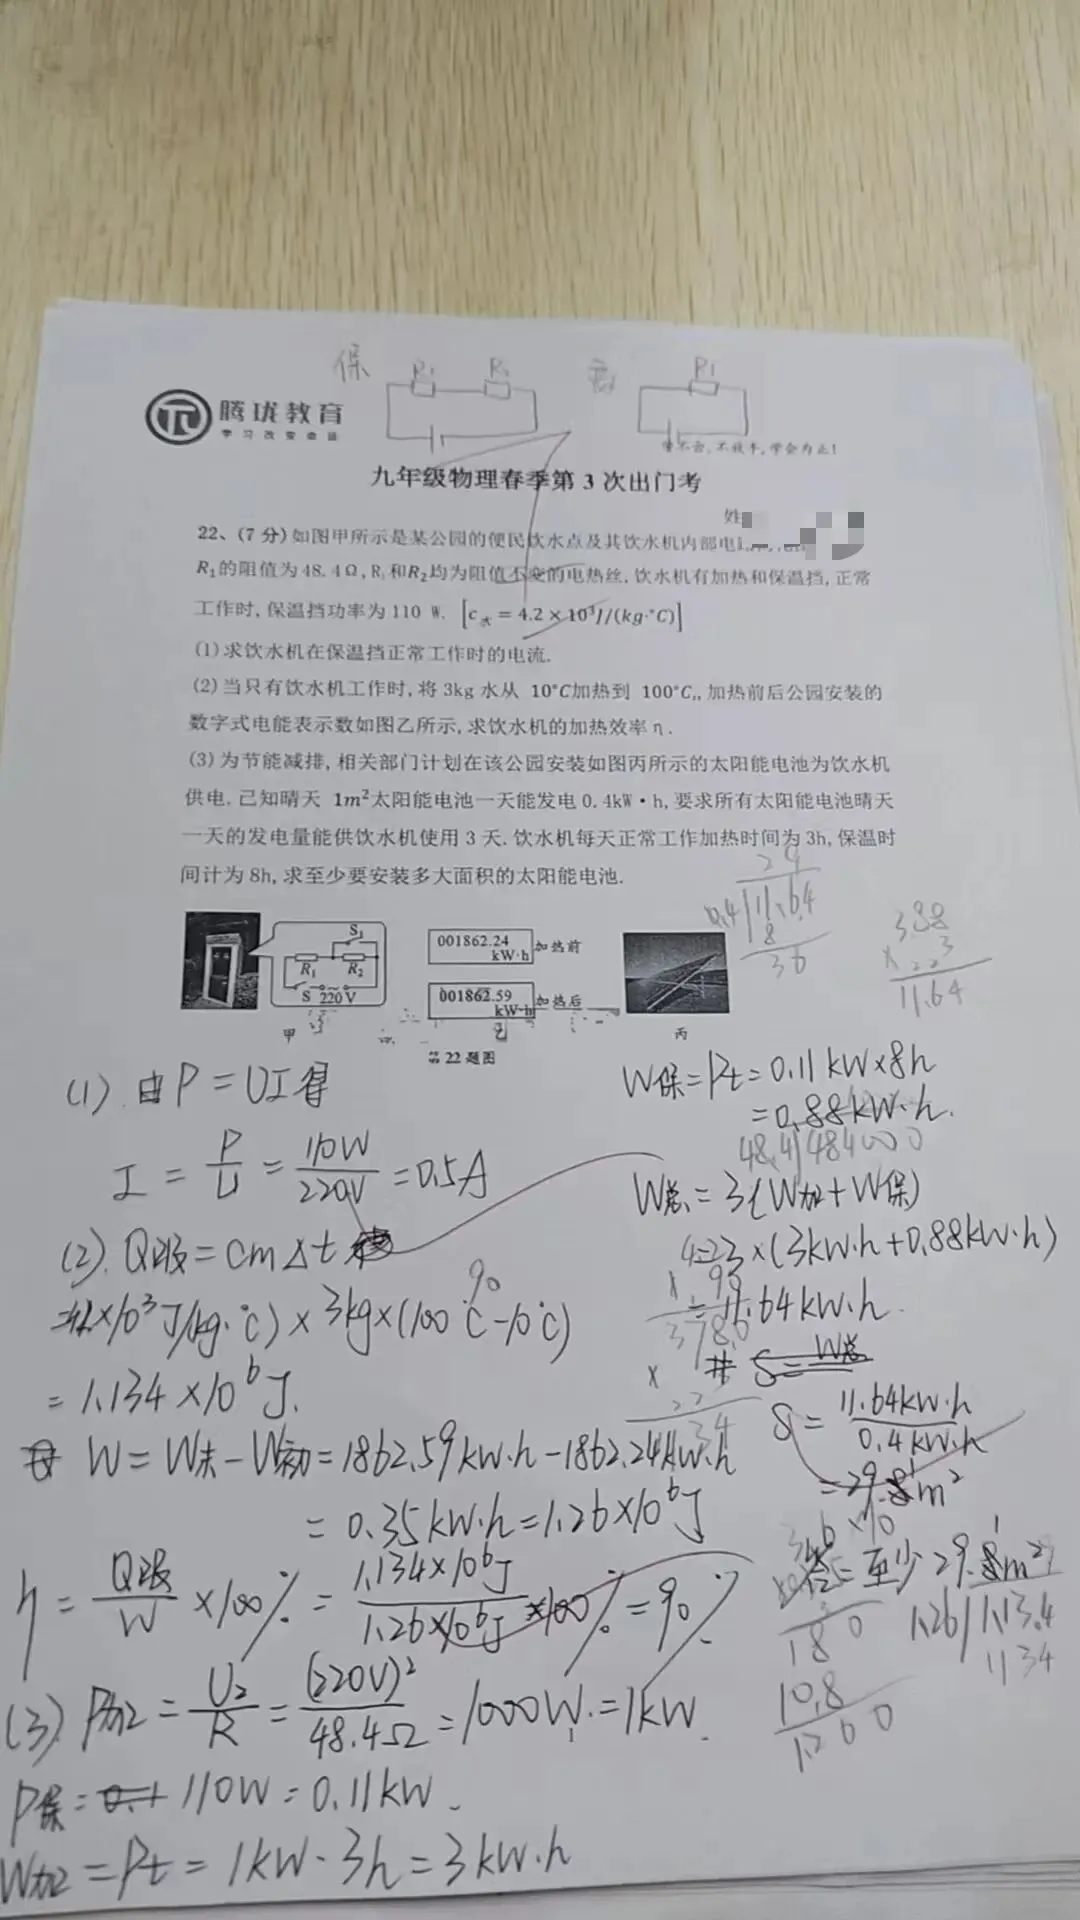 保 R₁ R₂
P1
腾珑教育
学习改变命运
学不会,不放手,学会为止!
九年级物理春季第3次出门考
姓
22、(7分)如图甲所示是某公园的便民饮水点及其饮水机内部电
R₁的阻值为48.4Ω,R₁和R₂均为阻值不变的电热丝,饮水机有加热和保温挡,正常
工作时,保温挡功率为110 W. [c水=4.2×10³J/(kg·°C)]
(1)求饮水机在保温挡正常工作时的电流.
(2)当只有饮水机工作时,将3kg水从 10°C加热到 100°C,,加热前后公园安装的
数字式电能表示数如图乙所示,求饮水机的加热效率η.
(3)为节能减排,相关部门计划在该公园安装如图丙所示的太阳能电池为饮水机
供电.已知晴天 1m²太阳能电池一天能发电0.4kW·h,要求所有太阳能电池晴天
一天的发电量能供饮水机使用3天.饮水机每天正常工作加热时间为3h,保温时
间计为8h,求至少要安装多大面积的太阳能电池.
29
0.4 11.64
8
36
3.88
× 3
11.64
S₁
R₁ R₂
S 220 V
甲
001862.24
kW·h
加热前
001862.59
kW·h
加热后
乙
丙
第22题图
(1).由P=UI得
I=P/U=110W/220V=0.5A
(2).Q吸=cm△t
90
×10³J/(kg·℃)×3kg×(100℃-10℃)
=1.134×10⁶J.
W=W末-W初=1862.59kW·h-1862.24kW·h
=0.35kW·h=1.26×10⁶J
η=Q吸/W×100%=1.134×10⁶J/1.26×10⁶J×100%=90%.
(3).P加=U²/R=(220V)²/48.4Ω=1000W.=1kW.
P保=110W=0.11kW.
W加=Pt=1kW·3h=3kW·h
W保=Pt=0.11kW×8h
=0.88kW·h.
48.4 484000
W总=3(W加+W保)
3×(3kW·h+0.88kW·h)
.64kW·h.
S=W总
S=11.64kW·h/0.4kW·h
=29.1m²
至少29.1m²
180
10.8
1.260
1.26 1.13.4
1134